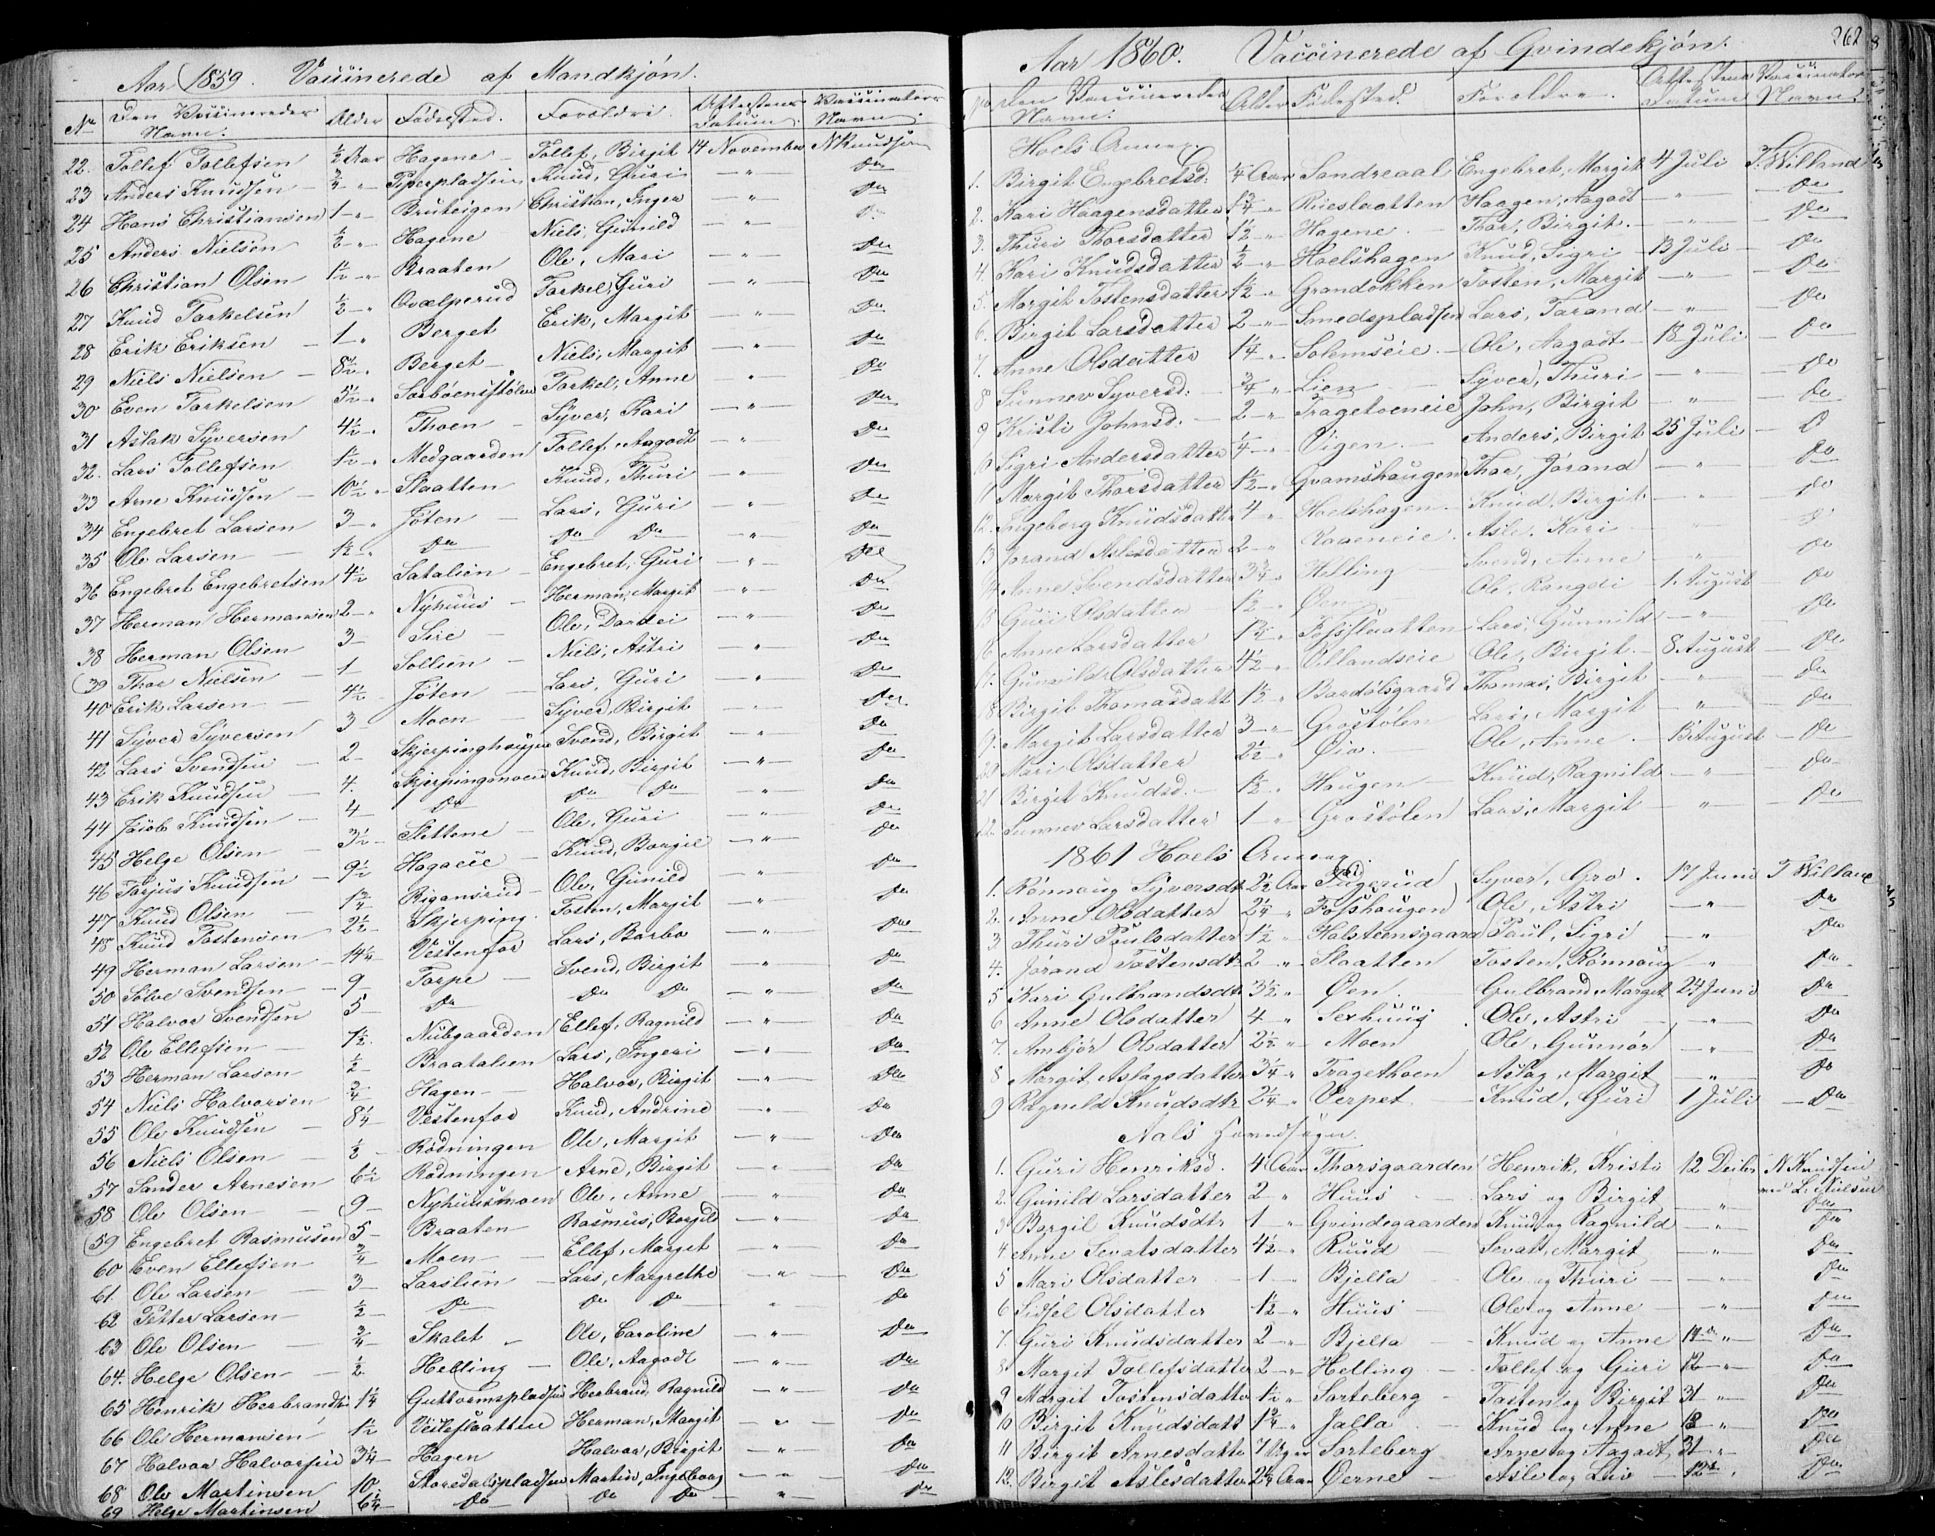 Aar 1859. Vaccinerede af Mandkjøn.
No Den Vaccineredes Navn. Alder Fødested. Forældre. Attestens Datum. Vaccinators Navn.
22. Tollef Tollefsen ½ Aar Hagene Tollef, Birgit 14 November N Knudsen
23 Anders Knudsen ¾ " Piperpladsen Knud, Guri — " — Do
24 Hans Christiansen 1 - " Bruteigen Christian, Inger — " — Do
25 Anders Nielsen ½ - " Hagene Niels, Gunild — " — Do
26 Christian Olsen 1½ - " Braaten Ole, Mari — " — Do
27 Knud Torkelsen ½ - " Qvælperud Torkel, Guri — " — Do
28 Erik Eriksen — 1 " Berget Erik, Margit — " — Do
29 Niels Nielsen — 8½ " Berget Niels, Margit — " — Do
30 Even Torkelsen 5½ " Torkel, Anne — " — Do
31 Aslak Syversen 4½ - " Thoen Syver, Kari — " — Do
32. Lars Tollefsen 1½ - " Medgaarden Tollef, Aagodt — " — Do
33 Arne Knudsen — 10½ " Slaatten Knud, Thuri — " — Do
34 Engebret Larsen 3 - " Jøten Lars, Guri — " — Do
35 Ole Larsen — 1½ " Do Do Do — " — Do
36 Engebret Engebretsen 4½ Satalien Engebret, Guri — " — Do
37 Herman Hermansen 2 - " Nyhuus Herman, Margit — " — Do
38 Herman Olsen 3 Sire Ole, Dordei — " — Do
39 Thor Nielsen — 1 Sollien Niels, Astri — " — Do
40 Erik Larsen — 4½ Jøten Lars, Guri — " — Do
41 Syver Syversen 3 Moen Syver, Birgit — " — Do
42 Lars Svendsen 2 Skjerpinghougen Svend, Birgit — " — Do
43 Erik Knudsen 4. Skjerpingmoen Knud, Birgit — " — Do
44 Jacob Knudsen — 4 Do Do Do — " — Do
45 Helge Olsen — 3½ Slettene Ole, Guri — " — Do
46 Tarjus Knudsen — 9½ Knud, Borgil — " — Do
47 Knud Olsen — 1¾ Rigansrud Ole, Gunild — " — Do
48 Knud Tostensen 2½ Skjerping. Tosten, Margit — " — Do
49 Herman Larsen 14¼ Vestenfor Lars, Barbo — " — Do
50 Sølve Svendsen 9 Torpe Svend, Birgit — " — Do
51 Halvor Svendsen 5 Do Do Do — " — Do
52 Ole Ellefsen — 7½ Nubgaarden Ellef, Ragnild — " — Do
53 Herman Larsen ½ Braatalien Lars, Ingeri — " — Do
54 Niels Halvorsen ¾ Hagen Halvor, Birgit — " — Do
55 Ole Knudsen — 8¼ Vestenfor Knud, Andrine — " — Do
56 Niels Olsen — ½ Rødningen Ole, Margit — " — Do
57 Sander Arnesen 6½ Rødningen Arne, Birgit — " — Do
58 Ole Olsen — 9 Nyhuusmoen Ole, Anne — " — Do
59 Engebret Rasmusen 5 Braaten Rasmus, Borgild — " — Do
60 Even Ellefsen ¾ Moen Ellef, Margit — " — Do
61. Ole Larsen — 3 Larslien Lars, Margrethe — " — Do
62 Petter Larsen ½ Do Do Do " Do
63 Ole Olsen — ¾ Skalet Ole, Caroline — " — Do
64. Helge Olsen — ½ Helling Ole, Aagodt — " — Do
65 Henrik Herbrands. 1¼ Guttormspladsen Herbrand, Ragnild — " — Do
66 Ole Hermansen 1½ Veitesaatten Herman, Margit — " — Do
67 Halvor Halvorsen 3¼ Hagen Halvor, Birgit — " — Do
68 Ole Martinsen 10 Storedalspladsen Martin, Ingeborg — " — Do
69 Helge Martinsen 6¼ Do Do Do " Do
262
Aar 1860. Vaccinerede af Qvindekjøn.
No Den Vaccineredes Navn. Alder Fødested. Forældre. Attestens Datum Vaccinators Navn.
Hoels Annex
1. Birgit Engebretsd. ¼ Aar Sandreaal Engebret, Margit 4 Juli T. Willand
2. Kari Haagensdatter 1¾ " Rueslaatten Haagen, Aagodt — " Do
3. Thuri Thorsdatter 1½ " Hagene Thor, Birgit. — " — Do
4 Kari Knudsdatter ½ " Hoelshagen Knud, Sigri 13 Juli Do
5. Margit Tostensdatter 1½ " Grandokken Tosten, Margit — " — Do
6. Birgit Larsdatter 2 - " Smedspladsen Lars, Torand — " — Do
7. Anne Olsdatter 1¼ " Solemseie Ole, Aagodt 18 Juli Do
8 Sunnev Syversd. ¾ " Lien Syver, Thuri — " — Do
9 Kristi Johnsd. 2 - " Tragetoeneie John, Birgit — " — Do
10 Sigri Andersdatter ¼ " Vigen Anders, Birgit 25 Juli Do
11 Margit Thorsdatter 1½ " Qvamshaugen Thor, Jørand — " — Do
12. Ingeborg Knudsdatter 4 " Hoelshagen Knud, Birgit — " — Do
13 Jorand Aslesdatter 2 - " Raaeneie Asle, Kari — " —
14 Anne Svendsdatter 3¾ " Helling Svend, Anne " Do
15 Guri Olsdatter 1½ " Øen Ole, Rangdi 1 August Do
16 Anne Larsdatter 1½ " Fossslaatten Lars, Gunnild — " — Do
17. Gunnild Olsdatter 4½ " Villandseie Ole, Birgit 8 August Do
18 Birgit Thomasdatt 1½ " Bardølsgaard Thomas, Birgit " Do
19. Margit Larsdatter 3 - " Grøstølen Lars, Margit — " — Do
20 Mari Olsdatter 2½ " Øio Ole, Anne 15 August Do
21 Birgit Knudsd. 1½ " Haugen Knud, Ragnild — " — Do
22. Sunnev Larsdatter 1 " Grøstølen Lars, Margit — " — Do
1861 Hoels Annex
1. Rønnoug Syversdtr 2½ Aar Syver, Gro. 17 Juni T Willand
2. Anne Olsdatter 2¼ " Fosshaugen Ole, Astri — " — Do
3 Thuri Poulsdatter 1½ " Halsteensgaard Paul, Sigri " Do
4. Jørand Tostensdtr 2 " Slaatten Tosten, Rønnoug " Do
5 Kari Gulbrandsdtr 3½ " Øen Gulbrand, Marget 24 Juni Do
6 Anne Olsdatter 4 " Sexhuus Ole, Astri — " — Do
7. Ambjør Olsdatter 2½ " Moen Ole, Gunnør — " — Do
8 Margit Aslagsdatter 3¼ " Tragethoen Aslag, Margit " Do
9 Ragnild Knudsdtr 2¼ " Verpet Knud, Guri 1 Juli Do
Aals Hovedsogn.
1. Guri Henriksd. 4 Aar Thorsgaarden Henrik, Kristi 12 Decbr N Knudsen
ved L. Nielsen
2. Gunild Larsdatter 2 " Huus Lars og Birgit " Do
3 Borgil Knudsdtr 1 " Qvindegaarden Knud og Ragnild " Do
4 Anne Sevatsdatter 4½ " Ruud Sevat, Margit — " — Do
5 Mari Olsdatter 1 " Bjella Ole og Thuri — " Do
6 Sidsel Olsdatter 1½ " Huus Ole og Anne — " Do
7. Guri Knudsdatter 2 " Bjella Knud og Anne " Do
8 Margit Tollefsdatter 2 " Helling Tollef og Guri 12 " Do
9 Margit Tostensdatter 1½ " Sorteberg Tosten og Birgit 31 " Do
10 Birgit Knudsdatt 1¾ " Jalla Knud og Anne 13 " Do
11 Birgit Arnesdatter 7 Uger Sorteberg Arne og Aagodt 31 " Do
12. Birgit Aslesdatter 2¼ Aar Øerne Asle og Liv 12 " Do